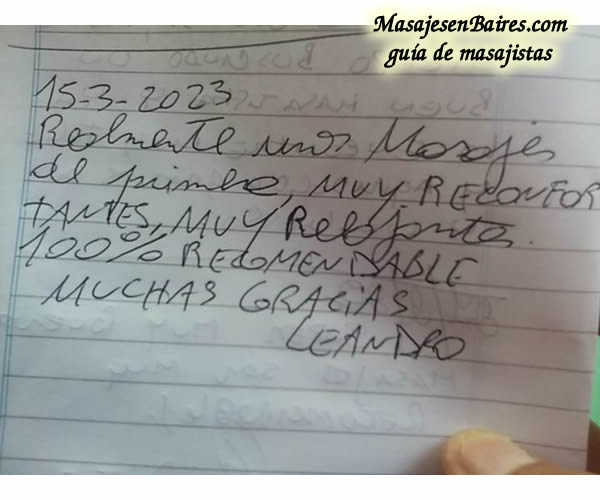 MasajesenBaires.com
guía de masajistas
15-3-2023
Realmente unos Masajes
de primera, MUY RECONFOR
TANTES, MUY Relajantes.
100% RECOMENDABLE
MUCHAS GRACIAS
LEANDRO